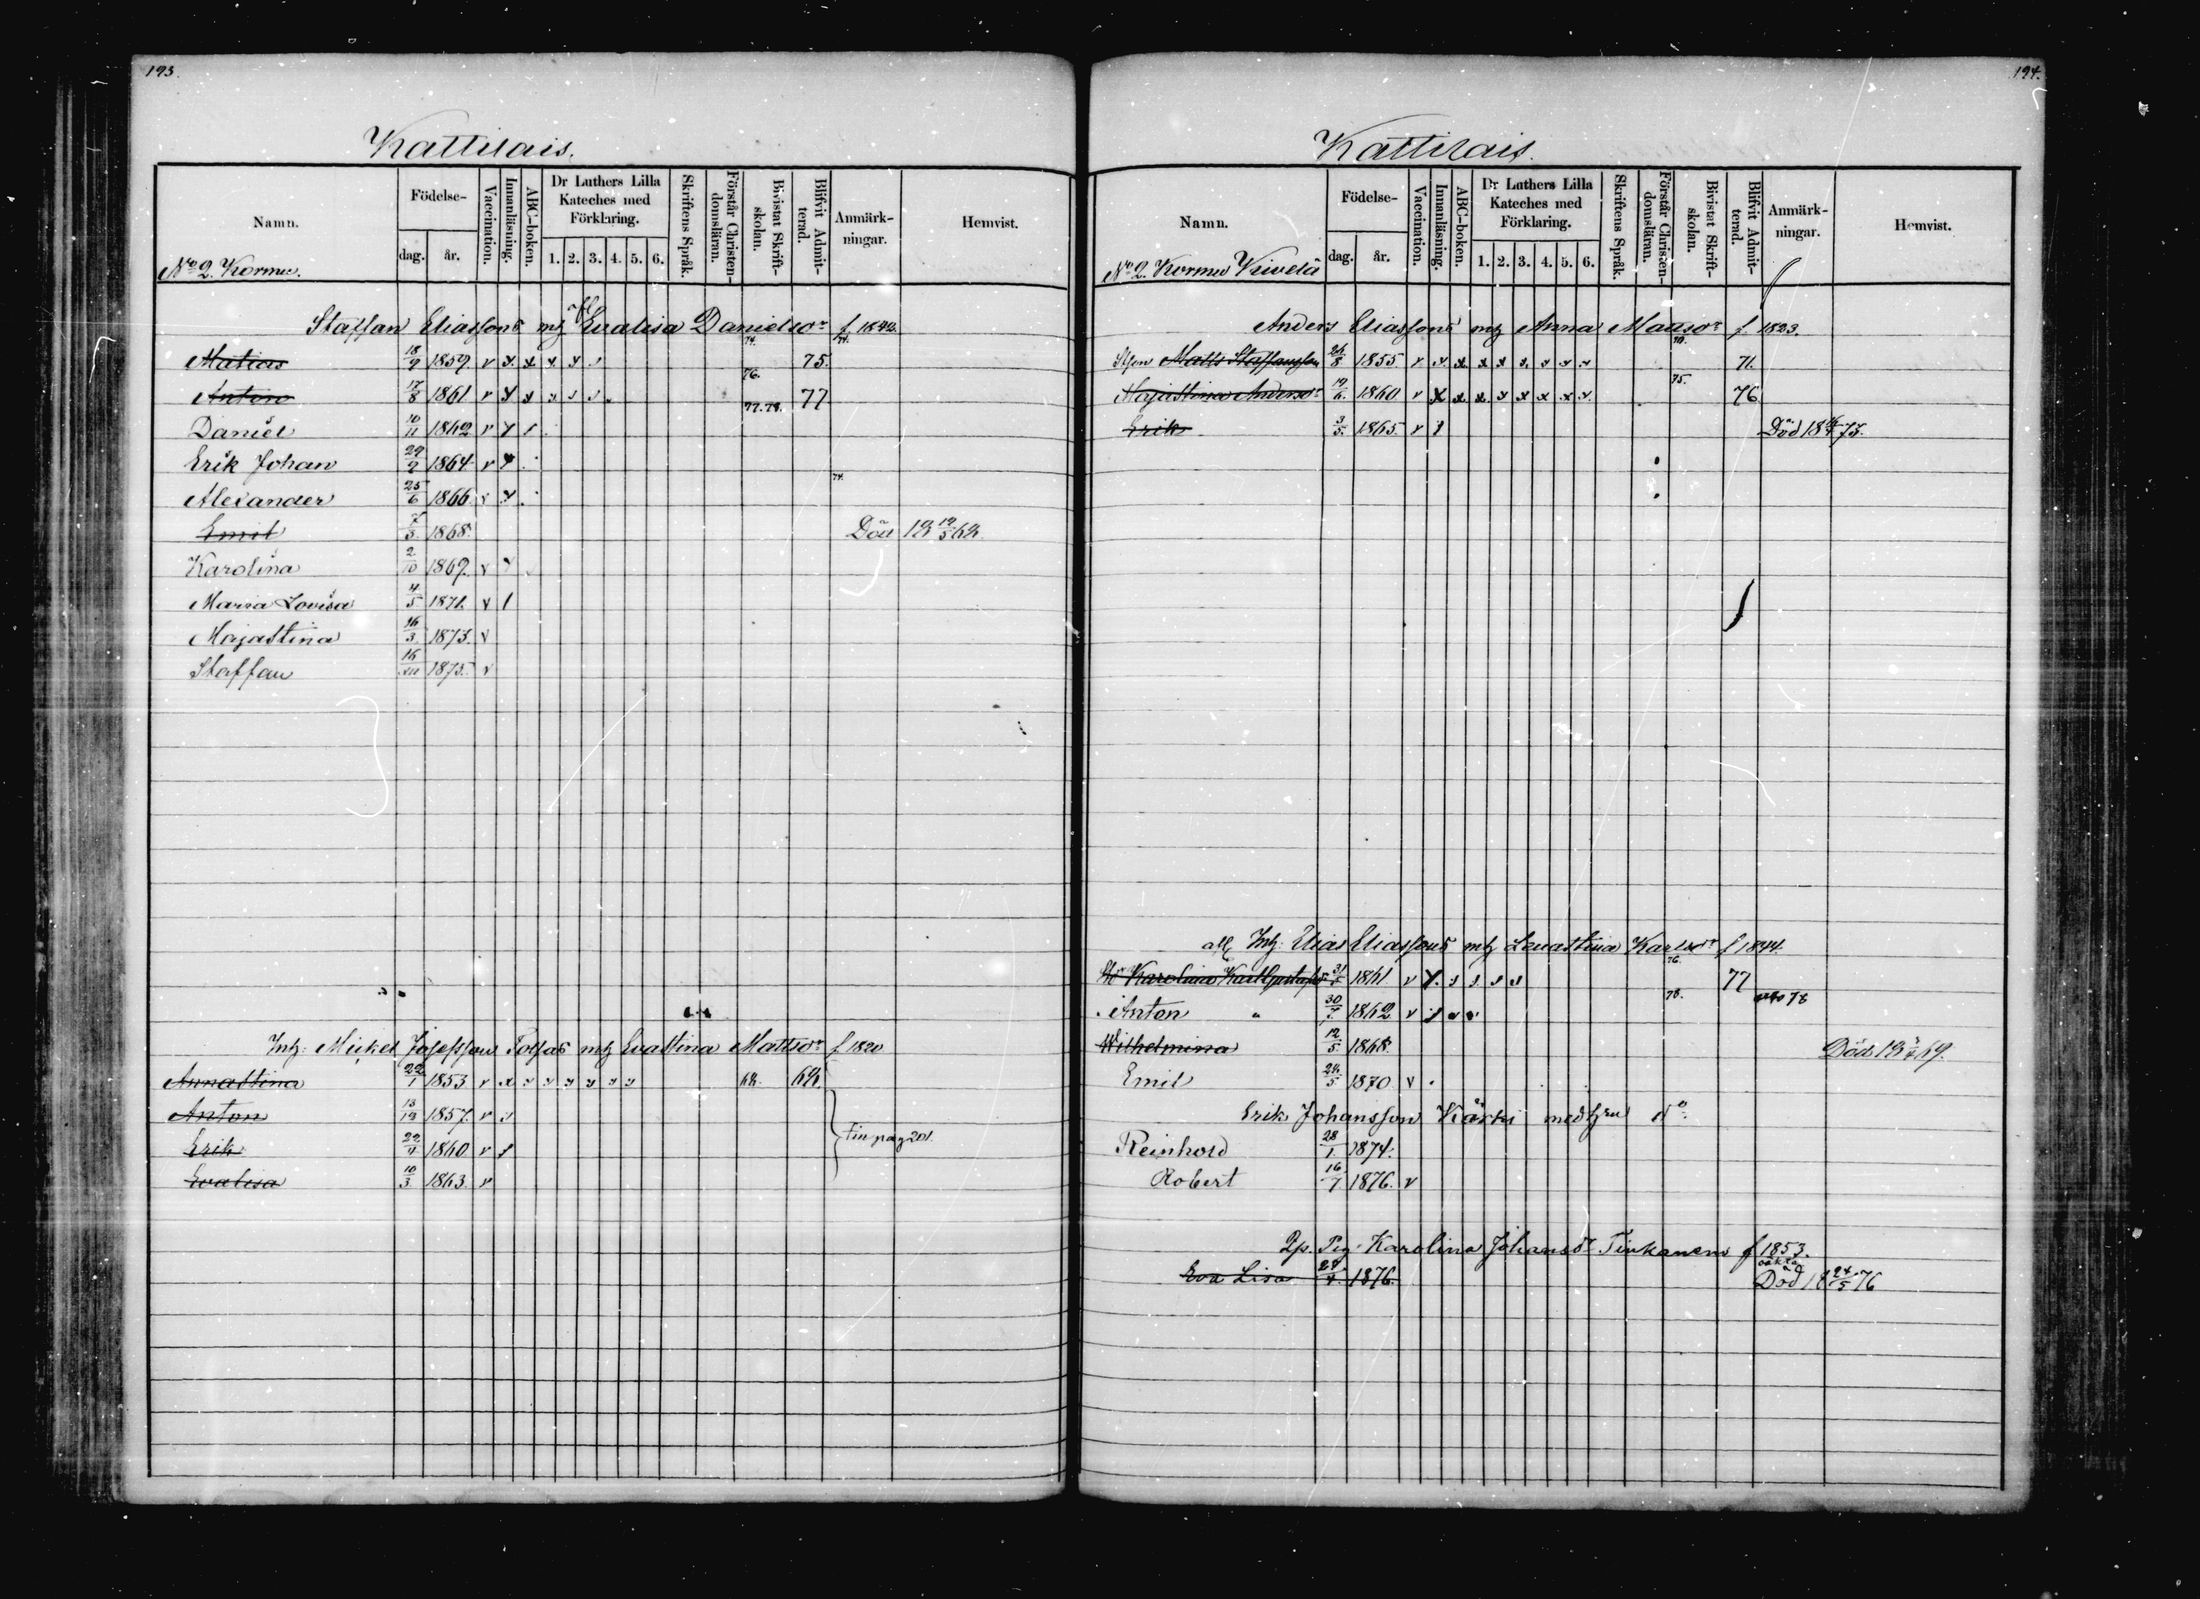 193.
Kattilais.
Namn.
Födelse-
dag.
år.
Vaccination.
Innanläsning.
ABC-boken.
Dr Luthers Lilla
Kateches med
Förklaring.
1. 2. 3. 4. 5. 6.
Skriftens Språk.
Förstår Christen-
domsläran.
Bivistat Skrift-
skolan.
Blifvit Admit-
terad.
Anmärk-
ningar.
Hemvist.
No 2. Kormu.
Staffan Eliassons mh Evalisa Danielsor f. 1842
Matias 18/9 1859. v x x x x 74. 75.
Anton 17/8 1861. v x x 76. 77
Daniel 10/11 1862 v 77. 78.
Erik Johan 29/9 1864 v
Alexander 25/6 1866. v
Emil 7/3 1868. Död 18 12/5 68.
Karolina 2/10 1869. v
Maria Lovisa 4/5 1871. v
Majastina 16/3 1873. v
Staffan 16/XII 1875. v
Inh: Mickel Josefsson Tolsas mh Evastina Mattsor f. 1820
Annastina 22/1 1853 v x 68. 68.
Anton 1857. v
Erik 22/4 1860 v
Evalisa 10/3 1863. v
Fin pag 201.
194.
Kattilais.
Namn.
Födelse-
dag.
år.
Vaccination.
Innanläsning.
ABC-boken.
Dr Luthers Lilla
Kateches med
Förklaring.
1. 2. 3. 4. 5. 6.
Skriftens Språk.
Förstår Christen-
domsläran.
Bivistat Skrift-
skolan.
Blifvit Admit-
terad.
Anmärk-
ningar.
Hemvist.
No 2. Kormu Kivelä
Anders Eliassons mh Anna Mattsor f. 1823.
Matts Staffansson 26/8 1855 v x x x x x x x x 70. 71.
Majastina Andersor 19/6 1860 v x x x x x x x x 75. 76
Erik 3/5 1865. v Död 18 73.
Inh: Elias Eliassons mh Lenastina Karlsor f 1844.
Karolina Karl Gustafsdr 1861 v x 76. 77
Anton " 30/7 1862 v 78. 78
Wilhelmina 12/5 1868. Död 18 69.
Emil 24/5 1870 v
Erik Johansson Kärki med hru No.
Reinhord 28/1 1874.
Robert 16/7 1876. v
Pig. Karolina Johansdr Tiukanen f 1853.
Eva Lisa 1876. oäkta Död 18 24/5 76